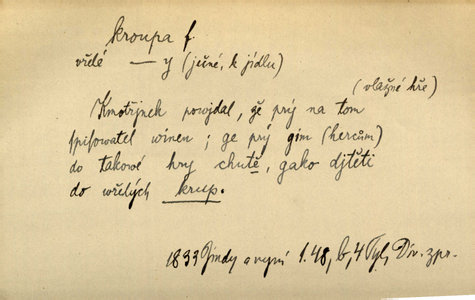 kroupa f.
vřelé — y (ječné, k jídlu)
(vlažné hře)
Kmotřjnek powjdal, že prý na tom
spisowatel winen; ge prý gim (hercům)
do takowé hry chutě, gako djtěti
do wřelých krup.
1833 Jindy a nynj 1.48, b, 4 Tyl, Div. zpr.